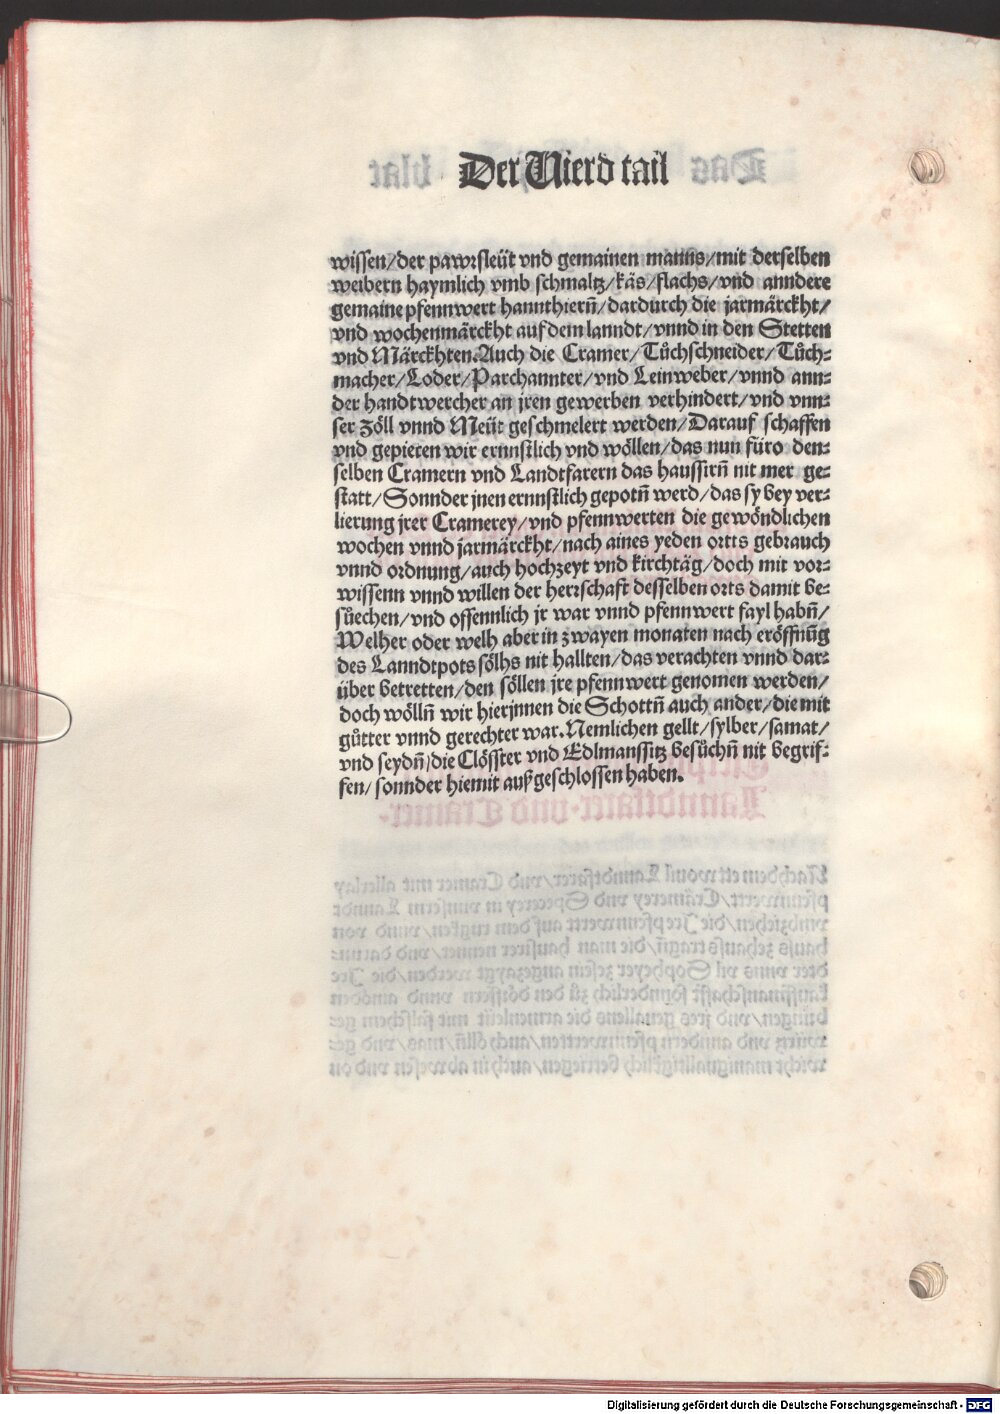 Der Vierd tail
wissen/der pawrsleüt vnd gemainen manns/mit derselben
weibern haymlich vmb schmaltz/käs/flachs/vnd anndere
gemaine pfennwert hannthiern̄/dardurch die jarmärckht/
vnd wochenmärckht auf dem lanndt/vnnd in den Stetten
vnd Märckhten. Auch die Cramer/Tůchschneider/Tůch⸗
macher/Loder/Parchannter/vnd Leinweber/vnnd ann⸗
der handtwercher an jren gewerben verhindert/vnd vnn⸗
ser Zöll vnnd Meüt geschmelert werden/Darauf schaffen
vnd gepieten wir ernnstlich vnd wöllen/das nun füro den⸗
selben Cramern vnd Landtfarern das haussirn̄ nit mer ge⸗
statt/Sonnder jnen ernnstlich gepotn̄ werd/das sy bey ver⸗
lierung jrer Cramerey/vnd pfennwerten die gewöndlichen
wochen vnnd jarmärckht/nach aines yeden ortts gebrauch
vnnd ordnung/auch hochzeyt vnd kirchtäg/doch mit vor⸗
wissenn vnnd willen der herrschaft desselben orts damit be⸗
sůechen/vnd offennlich jr war vnnd pfennwert fayl habn̄/
Welher oder welh aber in zwayen monaten nach eröffnūg
des Lanndtpots sölhs nit hallten/das verachten vnnd dar⸗
über betretten/den söllen jre pfennwert genomen werden/
doch wölln̄ wir hierjnnen die Schottn̄ auch ander/die mit
gůtter vnnd gerechter war. Nemlichen gellt/sylber/samat/
vnd seydn̄/die Clösster vnd Edlmanssitz besůchn̄ nit begrif⸗
fen/sonnder hiemit außgeschlossen haben.
Digitalisierung gefördert durch die Deutsche Forschungsgemeinschaft - DFG